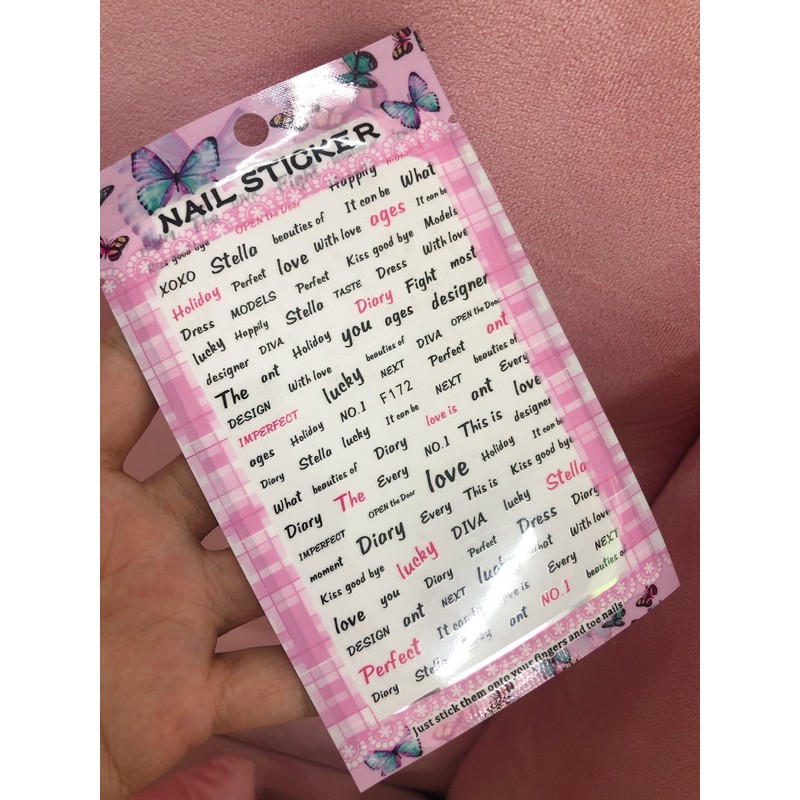 NAIL STICKER
good bye OPEN the Door Happily
XOXO Stella beauties of It can be What
Holiday Perfect love With love ages It can be
Dress MODELS Perfect Kiss good bye Models
lucky Happily Stella TASTE Dress With love
designer DIVA Diary Fight most
The ant Holiday you ages designer
DESIGN With love beauties of DIVA OPEN the Door
IMPERFECT lucky NEXT Perfect ant
ages Holiday NO.1 F172 beauties of
Diary Stella lucky It can be NEXT Every
What beauties of Diary love is ant love
Diary The Every NO.1 This is designer
IMPERFECT OPEN the Door love Holiday It can be
moment Diary Every This is Kiss good bye
Kiss good bye lucky DIVA lucky Stella
love you Diary Perfect Dress Diary
DESIGN ant NEXT lucky What With love
Perfect It can be love is Every NEXT
Diary Stella lucky ant NO.1 beauties of
Just stick them onto your fingers and toe nails